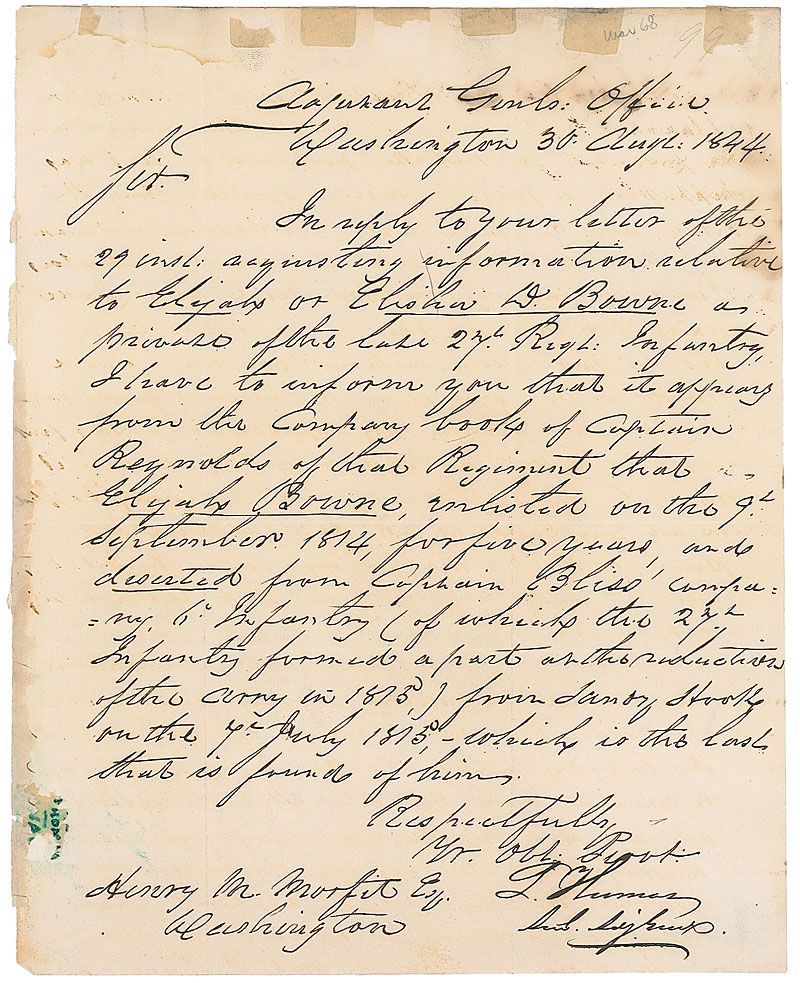 Mar 68
99
Adjutant Genls: Office
Washington 30 Augt: 1844.
Sir.
In reply to your letter of the
29 inst: requisting information relative
to Elijah or Elisha D. Bowne a
private of the late 27th Regt: Infantry,
I have to inform you that it appears
from the Company book of Captain
Reynolds of that Regiment that
Elijah Bowne, enlisted on the 9th
September 1814, for five years, and
deserted from Captain Bliss' compa=
=ny, 6th Infantry (of which the 27th
Infantry formed a part at the reduction
of the Army in 1815,) from Sandy Hook
on the 7th July 1815, - which is the last
that is found of him.
Respectfully,
Yr. Obt. Servt
L. Thomas
Henry M. Morfit Esq.
Washington